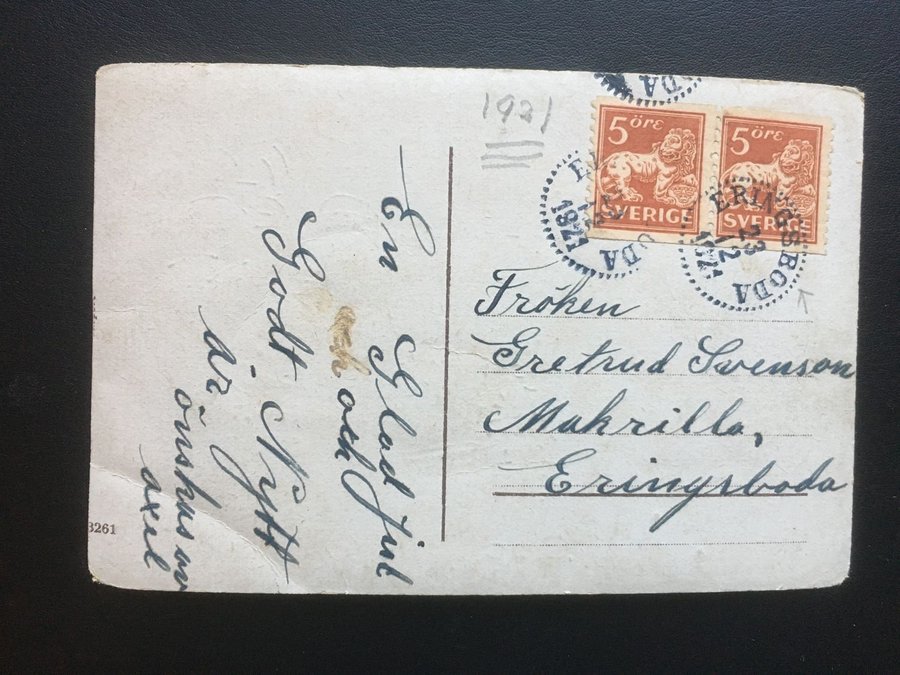 1921
5 ÖRE
SVERIGE
5 ÖRE
SVERIGE
ERINGSBODA
23
12
1921
Fröken
Gretrud Svenson
Makrilla,
Eringsboda
En Glad jul
och och
Godt Nytt
år
önskas av
axel
3261